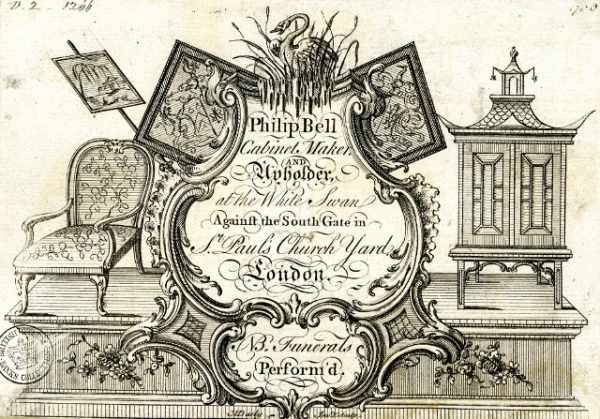 D.2-1266
Philip Bell
Cabinet Maker,
AND
Upholder,
at the White Swan
Againſt the South Gate in
St. Paul's Church Yard,
London.
NB. Funerals
Perform'd.